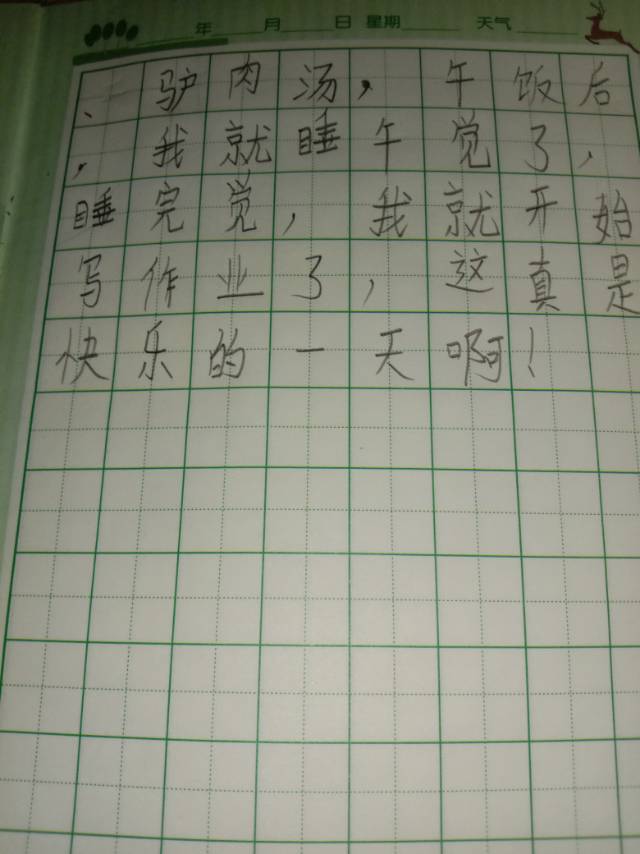 年 月 日 星期 天气
、驴肉汤，午饭后
，我就睡午觉了，
睡完觉，我就开始
写作业了，这真是
快乐的一天啊！